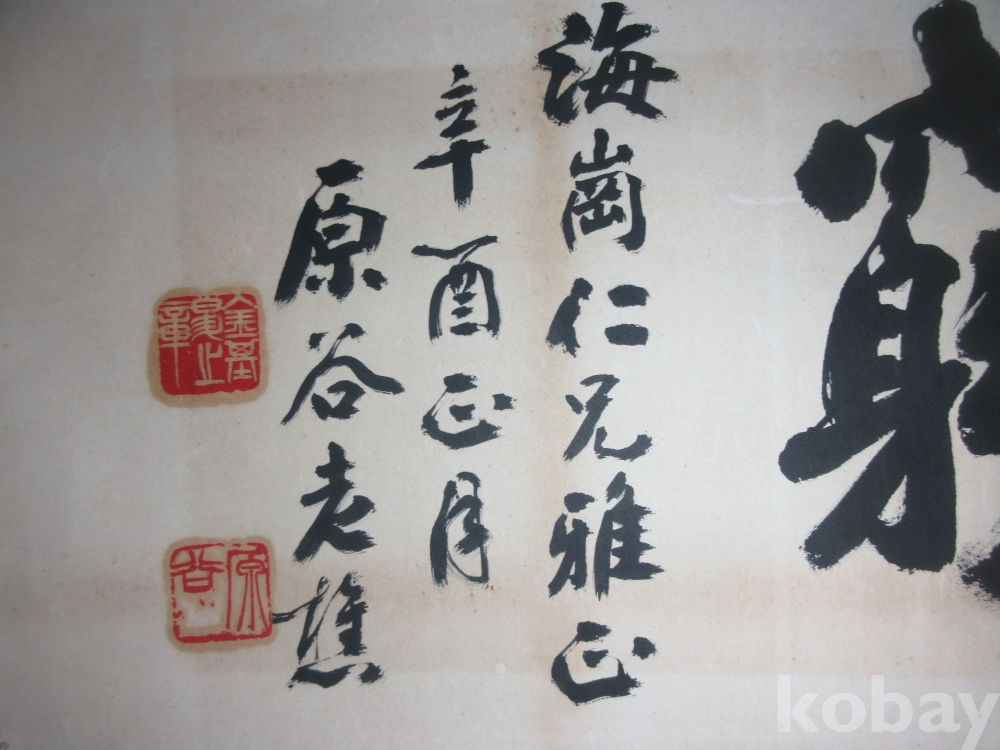 海崗仁兄雅正
辛酉正月
原谷老樵
原谷
kobay